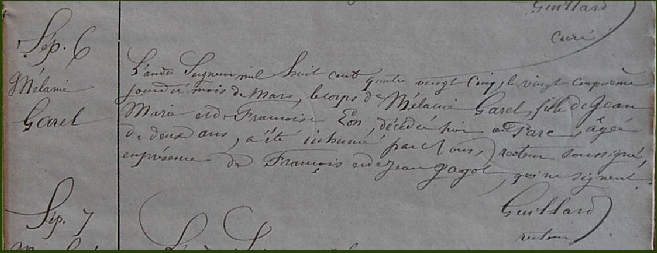 Guillard
curé
Sép. 6
Mélanie
Garel
L'an du Seigneur mil huit cent quatre vingt cinq, le vingt cinquième
jour du mois de Mars, le corps de Mélanie Garel, fille de Jean
Marie et de Françoise Eon, décédée hier au Parc, âgée
de deux ans, a été inhumé par Nous, recteur soussigné,
en présence de François et de Jean Jagot, qui ne signent.
Guillard
recteur
Sép. 7